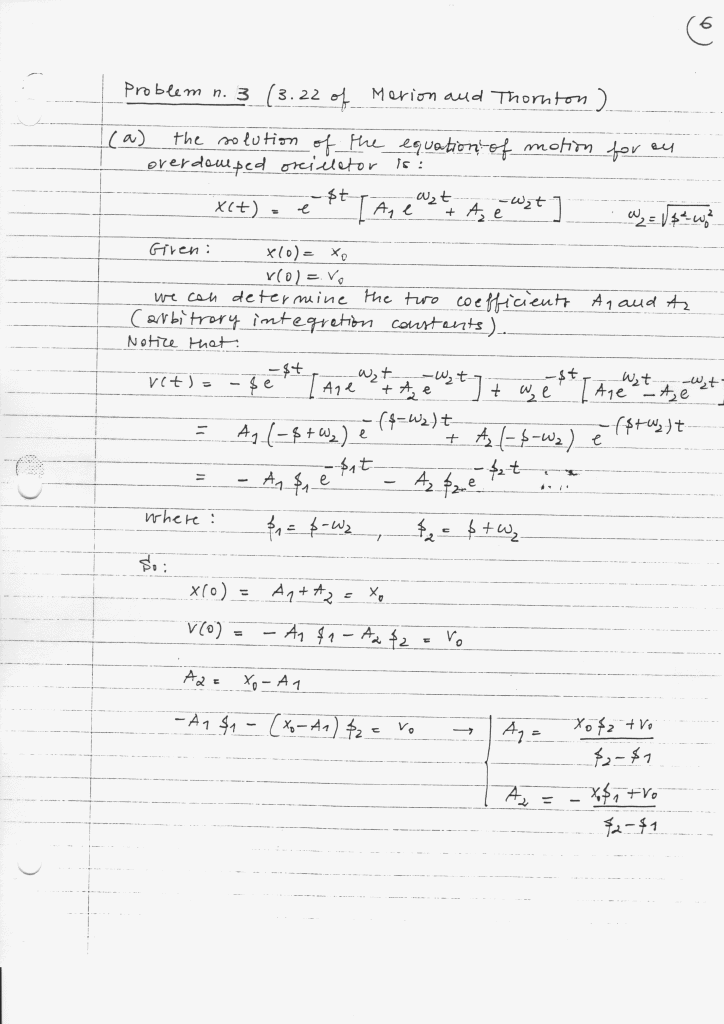 6
Problem n. 3 (3.22 of Marion and Thornton)
(a) the solution of the equation of motion for an
overdamped oscillator is:
x(t) = e^{-βt} [A₁ e^{ω₂t} + A₂ e^{-ω₂t}]    ω₂ = √(β²-ω₀²)
Given: x(0) = x₀
v(0) = v₀
we can determine the two coefficients A₁ and A₂
(arbitrary integration constants).
Notice that:
v(t) = -βe^{-βt} [A₁e^{ω₂t} + A₂e^{-ω₂t}] + ω₂e^{-βt} [A₁e^{ω₂t} - A₂e^{-ω₂t}
= A₁(-β+ω₂) e^{-(β-ω₂)t} + A₂(-β-ω₂) e^{-(β+ω₂)t}
= - A₁ β₁ e^{-β₁t} - A₂ β₂ e^{-β₂t}
where: β₁ = β-ω₂ , β₂ = β+ω₂
So:
x(0) = A₁ + A₂ = x₀
v(0) = - A₁ β₁ - A₂ β₂ = v₀
A₂ = x₀ - A₁
-A₁ β₁ - (x₀-A₁) β₂ = v₀ → | A₁ = (x₀β₂ + v₀)/(β₂-β₁)
A₂ = - (x₀β₁ + v₀)/(β₂-β₁)